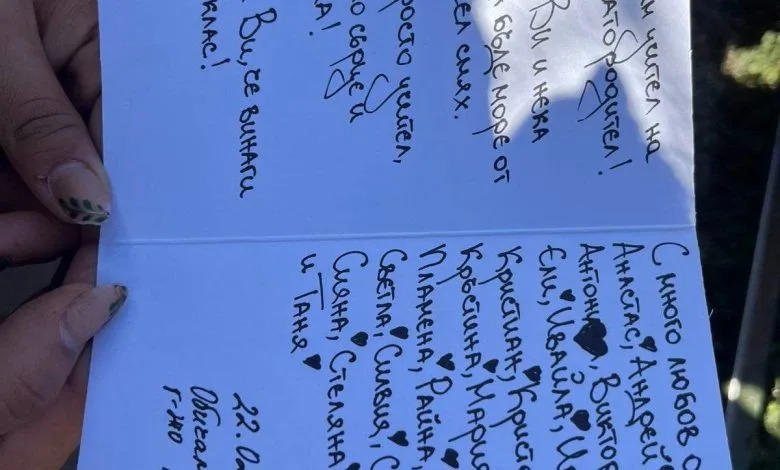 учител на
родител!
Ви и нека
бъде море от
смях.
просто учител,
сърце и
Ви, че винаги
клас!
С много любов
Анастас, Андрей
Антон, Виктор
Ели, Ивайла,
Кристиан,
Кръстина, Мария
Пламена, Райна,
Светла, Силвия,
Сияна, Стеляна
и Таня
22.
г-жо